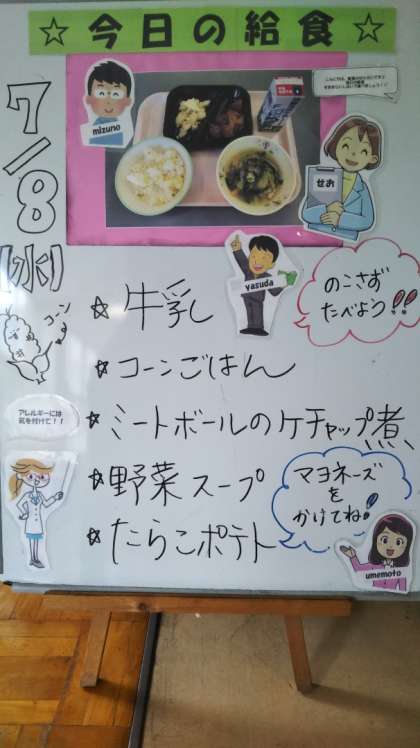 ☆今日の給食☆
7/8(水)
mizuno
せお
yasuda
のこさず
たべよう!!
コーン
☆牛乳
☆コーンごはん
☆ミートボールのケチャップ煮
☆野菜スープ
☆たらこポテト
アレルギーには
気を付けて!!
マヨネーズ
を
かけてね!
umemoto